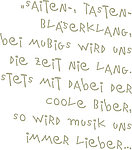 „SAITEN-, TASTEN-
BLÄSERKLANG,
bEI MOBIGS WIRD UNS
DIE ZEIT NIE LANG.
STETS MIT DABEI DER
COOLE BIBER,
SO WIRD MUSIK UNS
IMMER LIEBER...